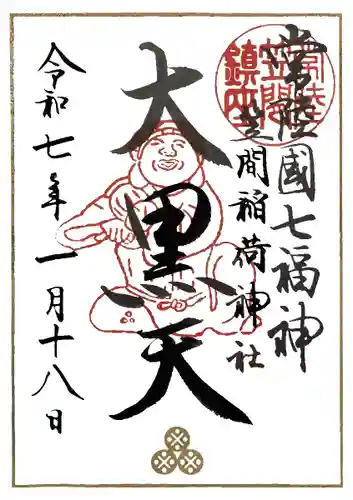 常陸國七福神
笠間稲荷神社
大黒天
令和七年一月十八日
常陸
笠間
鎮座